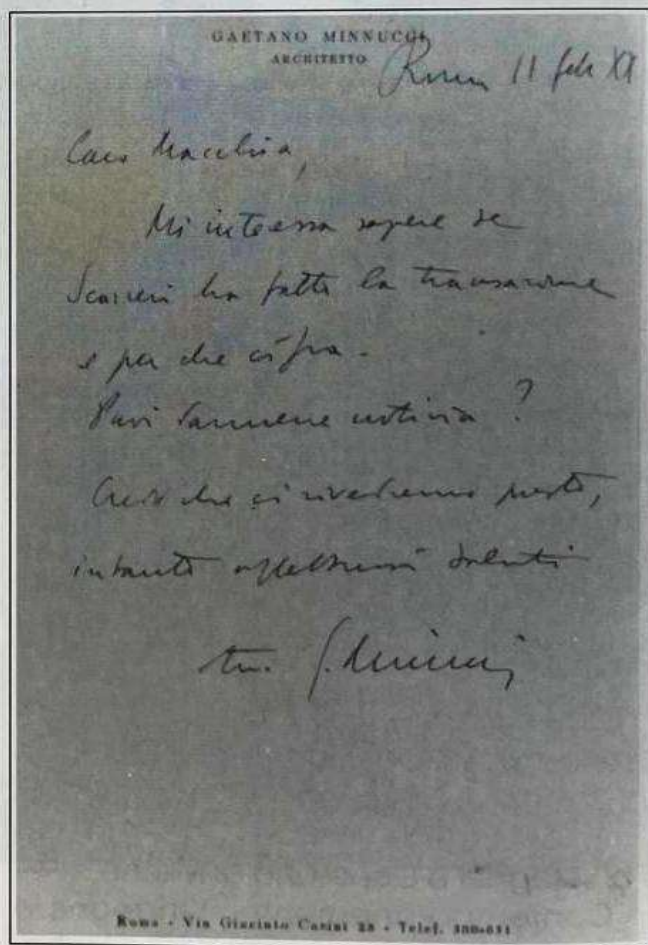 GAETANO MINNUCCI
ARCHITETTO
Roma 11 feb XI
Caro
Mi interessa sapere se
ha fatto la transazione
e per che cifra.
Puoi darmene notizia?
Credo che ci rivedremo presto,
intanto affettuosi saluti
tuo G. Minnucci
Roma - Via Giacinto Carini 28 - Telef.